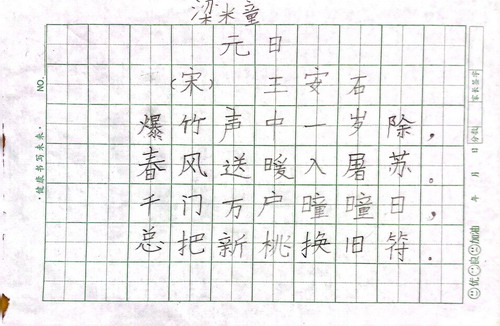 梁米童
元日
(宋) 王安石
爆竹声中一岁除，
春风送暖入屠苏。
千门万户曈曈日，
总把新桃换旧符.
NO.
·健康书写未来·
家长签字
分数
年 月 日
优 良 加油